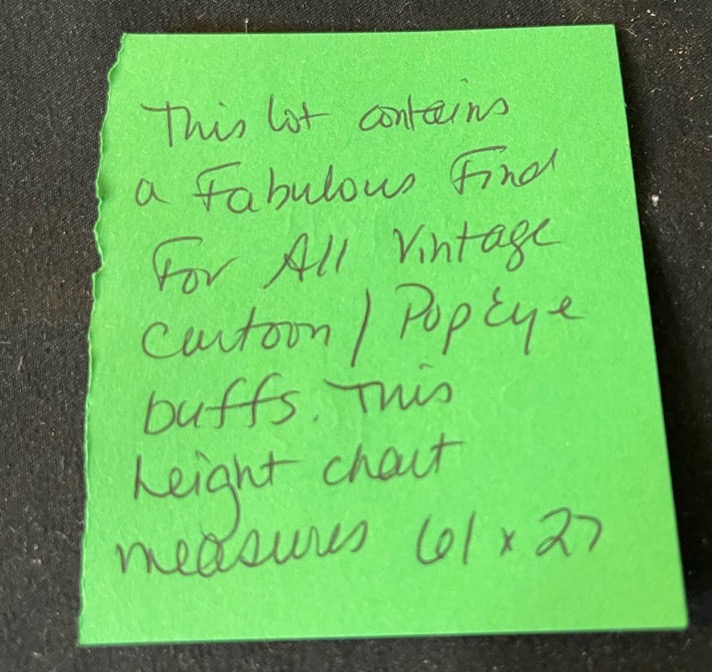 This lot contains
a Fabulous Find
For All Vintage
Cartoon / PopEye
buffs. This
height chart
measures 61 x 27